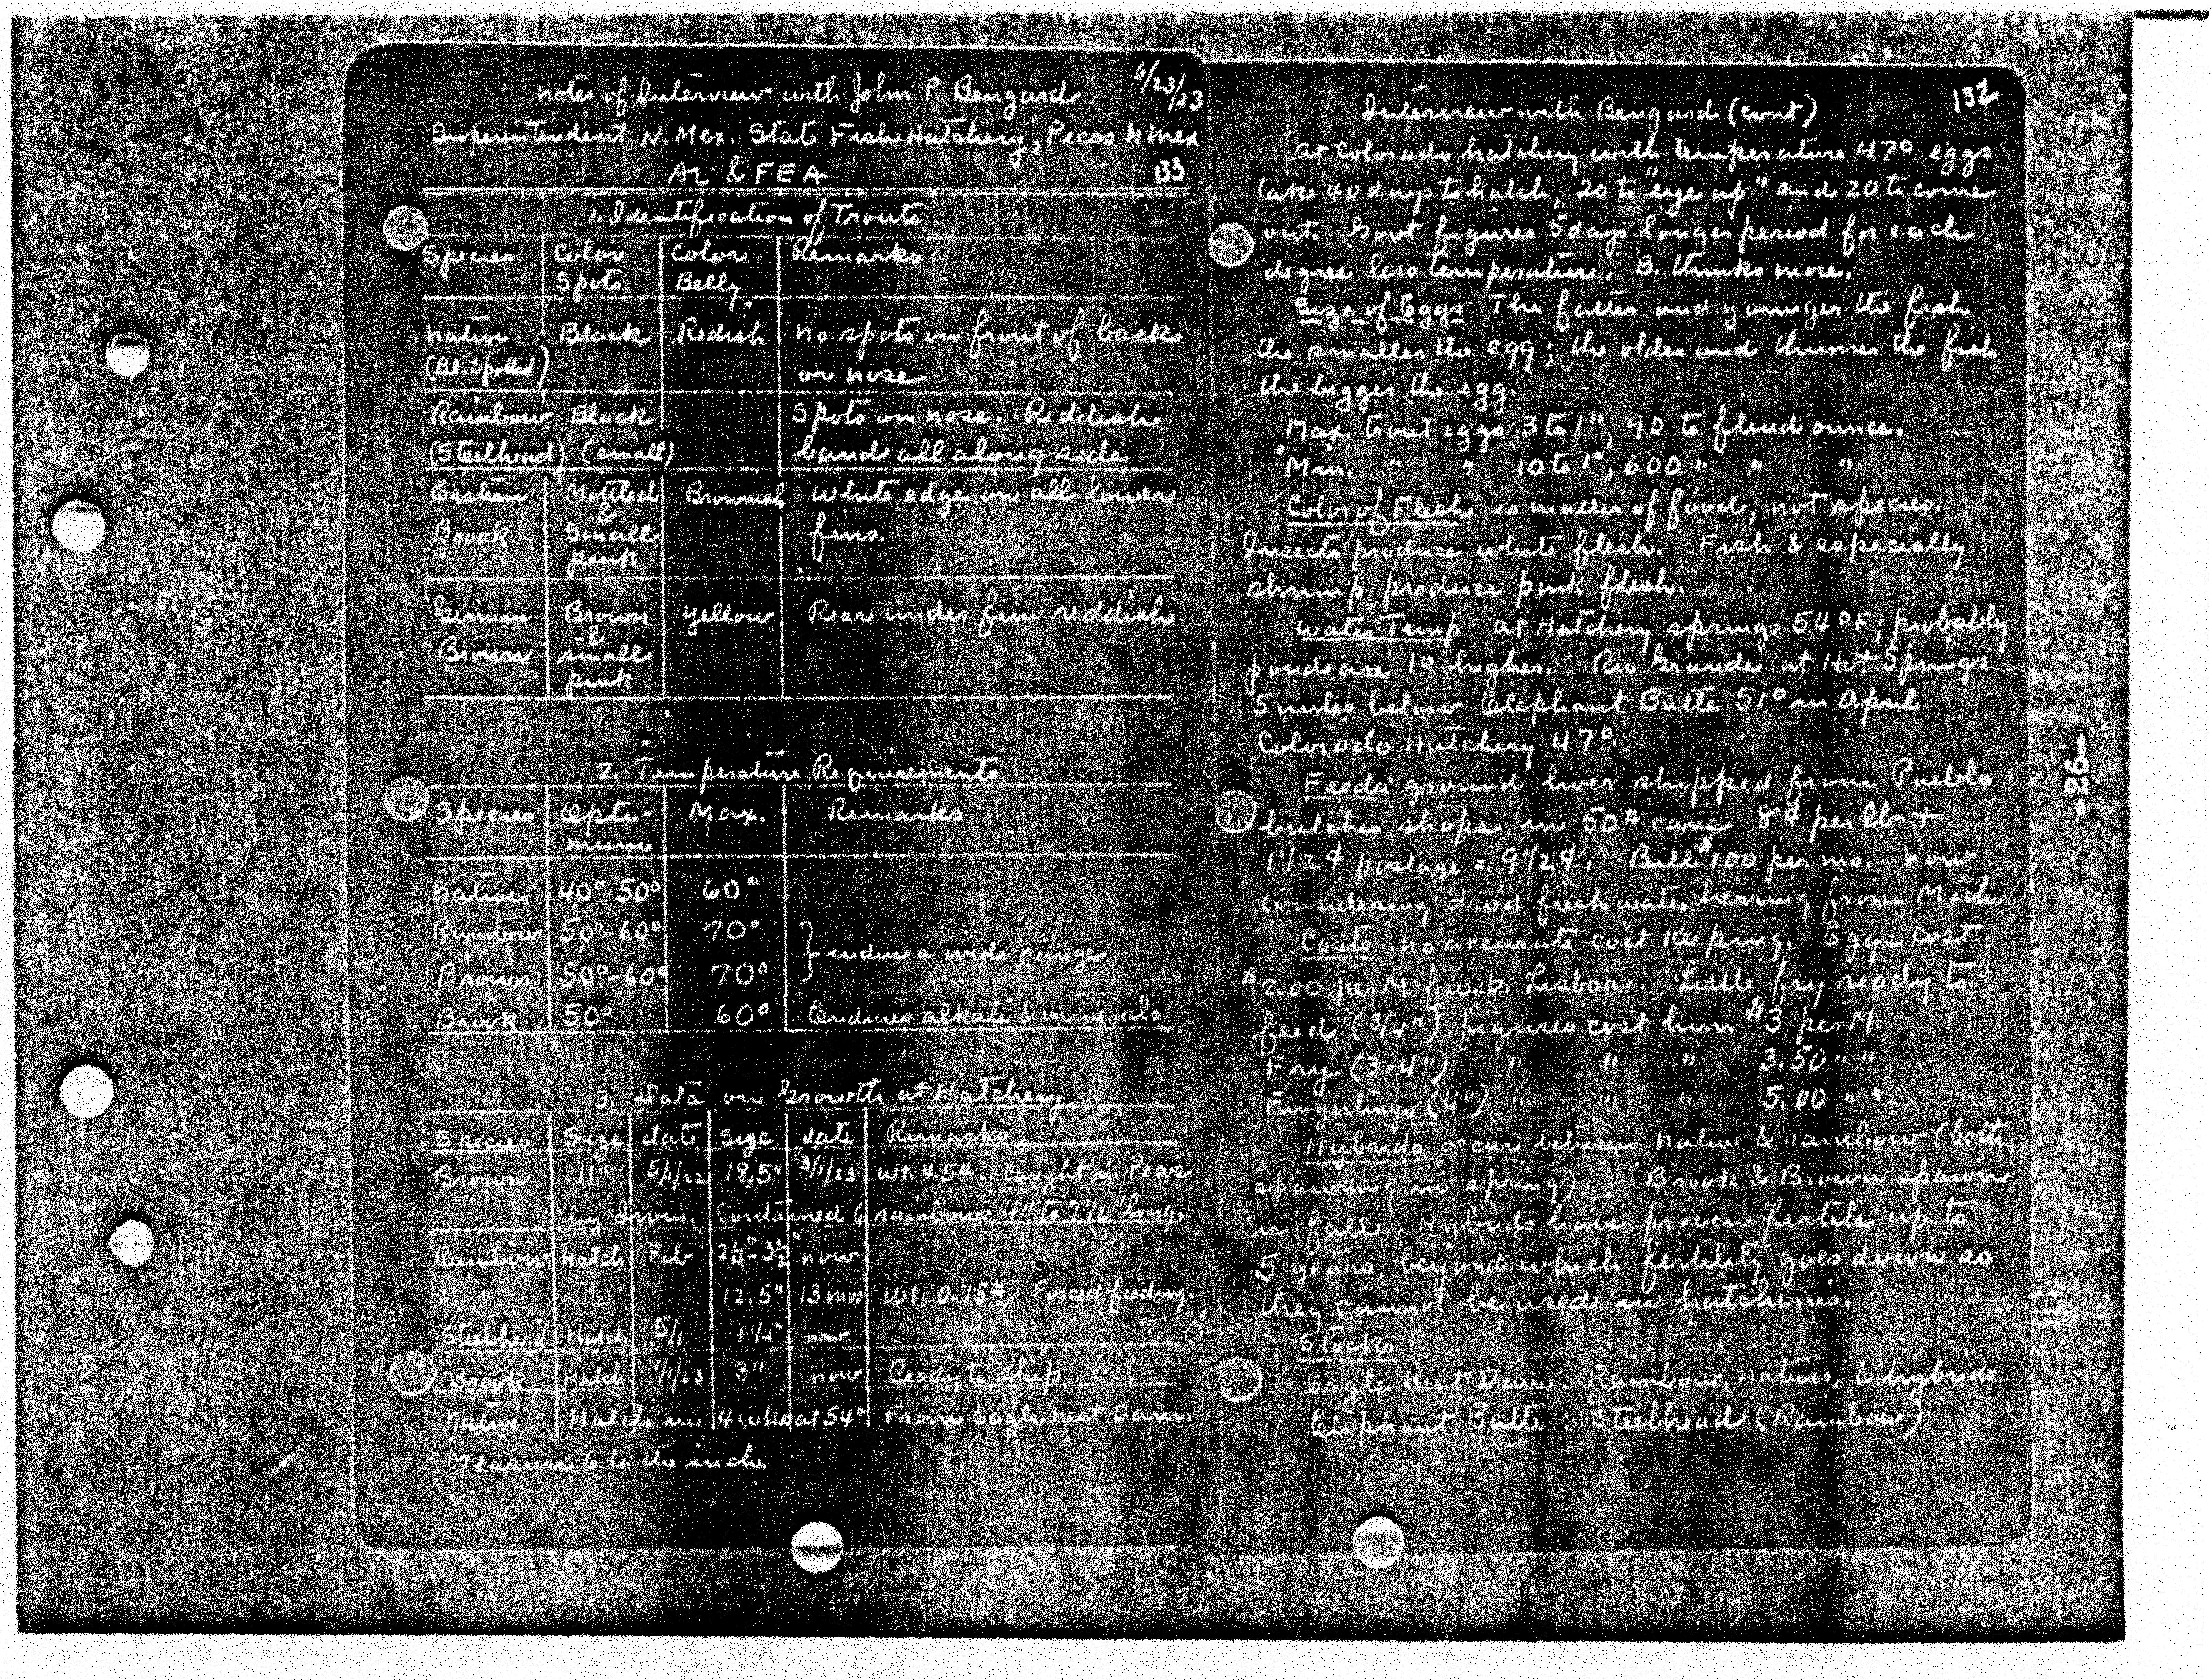 notes of Interview with John P. Bengard 6/23/23
Superintendent N. Mex. State Fish Hatchery, Pecos N Mex
AL & FEA 133
1. Identification of Trouts
Species Color Spots Color Belly Remarks
native (Bl. Spotted) Black Redish no spots on front of back or nose
Rainbow (Steelhead) Black (small) Spots on nose. Reddish band all along side
Eastern Brook Mottled & Small pink Brownish White edge on all lower fins.
German Brown Brown & small pink yellow Rear under fin reddish
2. Temperature Requirements
Species Opti-mum Max. Remarks
native 40°-50° 60°
Rainbow 50°-60° 70°
} endure a wide range
Brown 50°-60° 70°
Brook 50° 60° Endures alkali & minerals
3. Data on Growth at Hatchery
Species Size date size date Remarks
Brown 11" 5/1/22 18,5" 3/1/23 wt. 4.5#. Caught in Pecos
by Irvin. Contained 6 rainbows 4" to 7 1/2" long.
Rainbow Hatch Feb 2 1/4"-3 1/2" now
" 12.5" 13 mos wt. 0.75#. Forced feeding.
Steelhead Hatch 5/1 1 1/4" now
Brook Hatch 1/1/23 3" now Ready to ship
native Hatch in 4 wks at 54° From Eagle Nest Dam.
Measure 6 to the inch.
Interview with Bengard (cont) 132
at Colorado hatchery with temperature 47° eggs
take 40 days to hatch, 20 to "eye up" and 20 to come
out. Govt figures 5 days longer period for each
degree less temperature. B. thinks more.
Size of Eggs The fatter and younger the fish
the smaller the egg; the older and thinner the fish
the bigger the egg.
Max. trout eggs 3 to 1", 90 to fluid ounce.
Min. " " 10 to 1", 600 " " "
Color of Flesh is matter of food, not species.
Insects produce white flesh. Fish & especially
shrimp produce pink flesh.
Water Temp at Hatchery springs 54°F; probably
ponds are 1° higher. Rio Grande at Hot Springs
5 miles below Elephant Butte 51° in April.
Colorado Hatchery 47°.
Feeds ground liver shipped from Pueblo
butcher shops in 50# cans 8¢ per lb +
1 1/2¢ postage = 9 1/2¢. Bill $100 per mo. now
considering dried freshwater herring from Mich.
Costs no accurate cost keeping. Eggs cost
$2.00 per M f.o.b. Lisboa. Little fry ready to
feed (3/4") figures cost him $3 per M
Fry (3-4") " " " 3.50 " "
Fingerlings (4") " " " 5.00 " "
Hybrids occur between native & rainbow (both
spawning in spring). Brook & Brown spawn
in fall. Hybrids have proven fertile up to
5 years, beyond which fertility goes down so
they cannot be used in hatcheries.
Stocks
Eagle Nest Dam: Rainbow, natives, & hybrids
Elephant Butte: Steelhead (Rainbow)
-26-